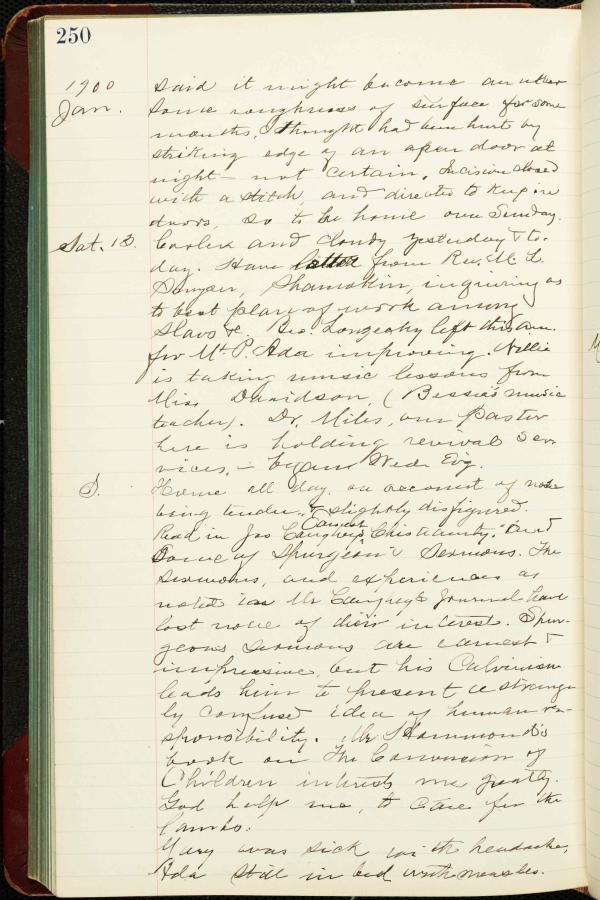 250
1900 said it might become an ulcer
Jan. some roughness of surface for some
months, I thought had been hurt by
striking edge of an open door at
night – not certain. Incision closed
with a stitch, and directed to keep in
doors, so to be home over Sunday.
Sat. 13. Cooler and cloudy yesterday & to-
day. Have letter from Rev. M. L.
Shamokin, inquiring as
to best plan of work among
Slavs &c. Geo. left this a.m.
for Mt. P. Ada improving. Nellie
is taking music lessons from
Miss Davidson, (Bessie's music
teacher). Dr. Miles, our Pastor
here is holding revival ser-
vices, – began Wed. Evg.
S. Home all day on account of nose
being tender, & slightly disfigured.
Read in Jas Caughey's "Earnest Christianity," and
Some of Spurgeon's Sermons. The
sermons, and experiences as
noted in Mr Caughey's Journal have
lost none of their interest. Spur-
geons sermons are earnest &
impressive, but his Calvinism
leads him to present a strange-
ly confused idea of human re-
sponsibility. Mr Hammond's
book on The Conversion of
Children interests me greatly.
God help me, to care for the
lambs.
Mary was sick with headache,
Ada still in bed with measles.